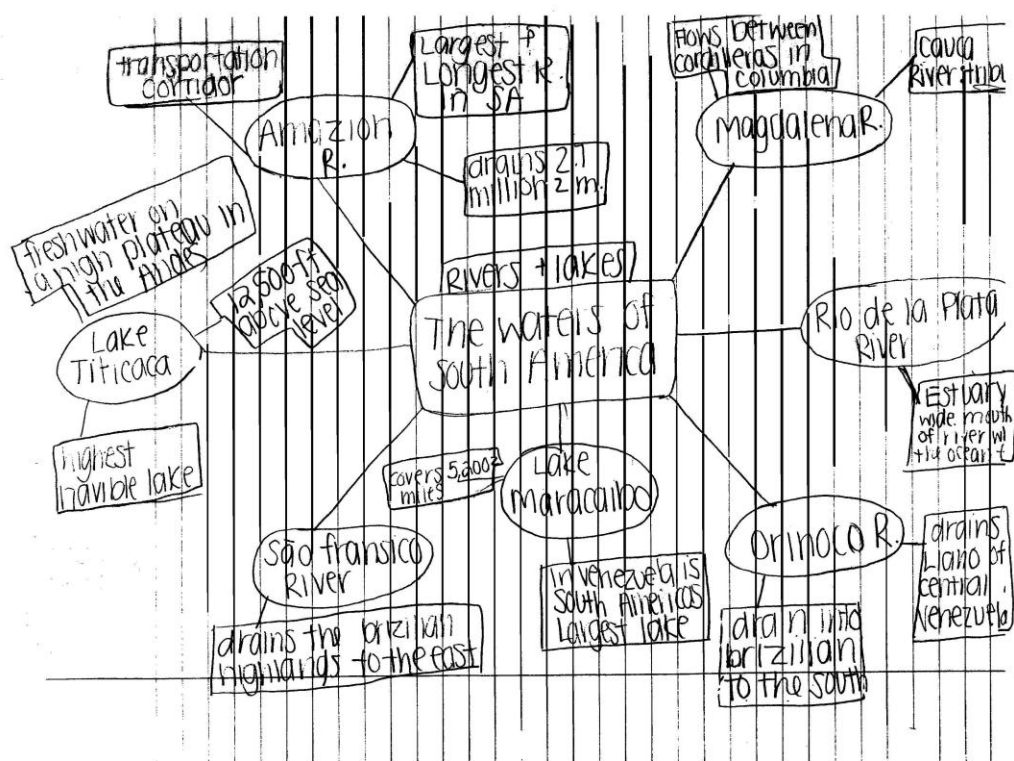 transportation
corridor
Largest &
Longest R.
in SA
Amazion
R.
drains 2.7
million 2 m.
Flows between
cordilleras in
columbia
cauca
River
Magdalena R.
freshwater on
a high plateau in
the Andes
12,500 ft
above sea
level
Lake
Titicaca
highest
navible lake
Rivers + lakes
The waters of
south America
Rio de la Plata
River
Estuary
wide mouth
of river
covers 5,200 2
miles
Lake
Maracaibo
in venezuela is
South Americas
Largest lake
São fransico
River
drains the brizilian
highlands to the east
orinoco R.
drains
Llano of
central
venezuela
drain into
brizilian
to the south